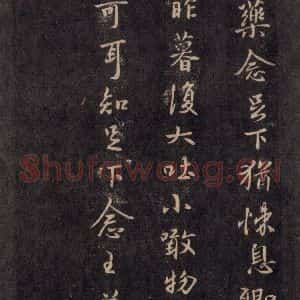 藥念足下猶悚息卿
能暮復大吐小噉物
可耳知足下念王羲
Shufawang.cn